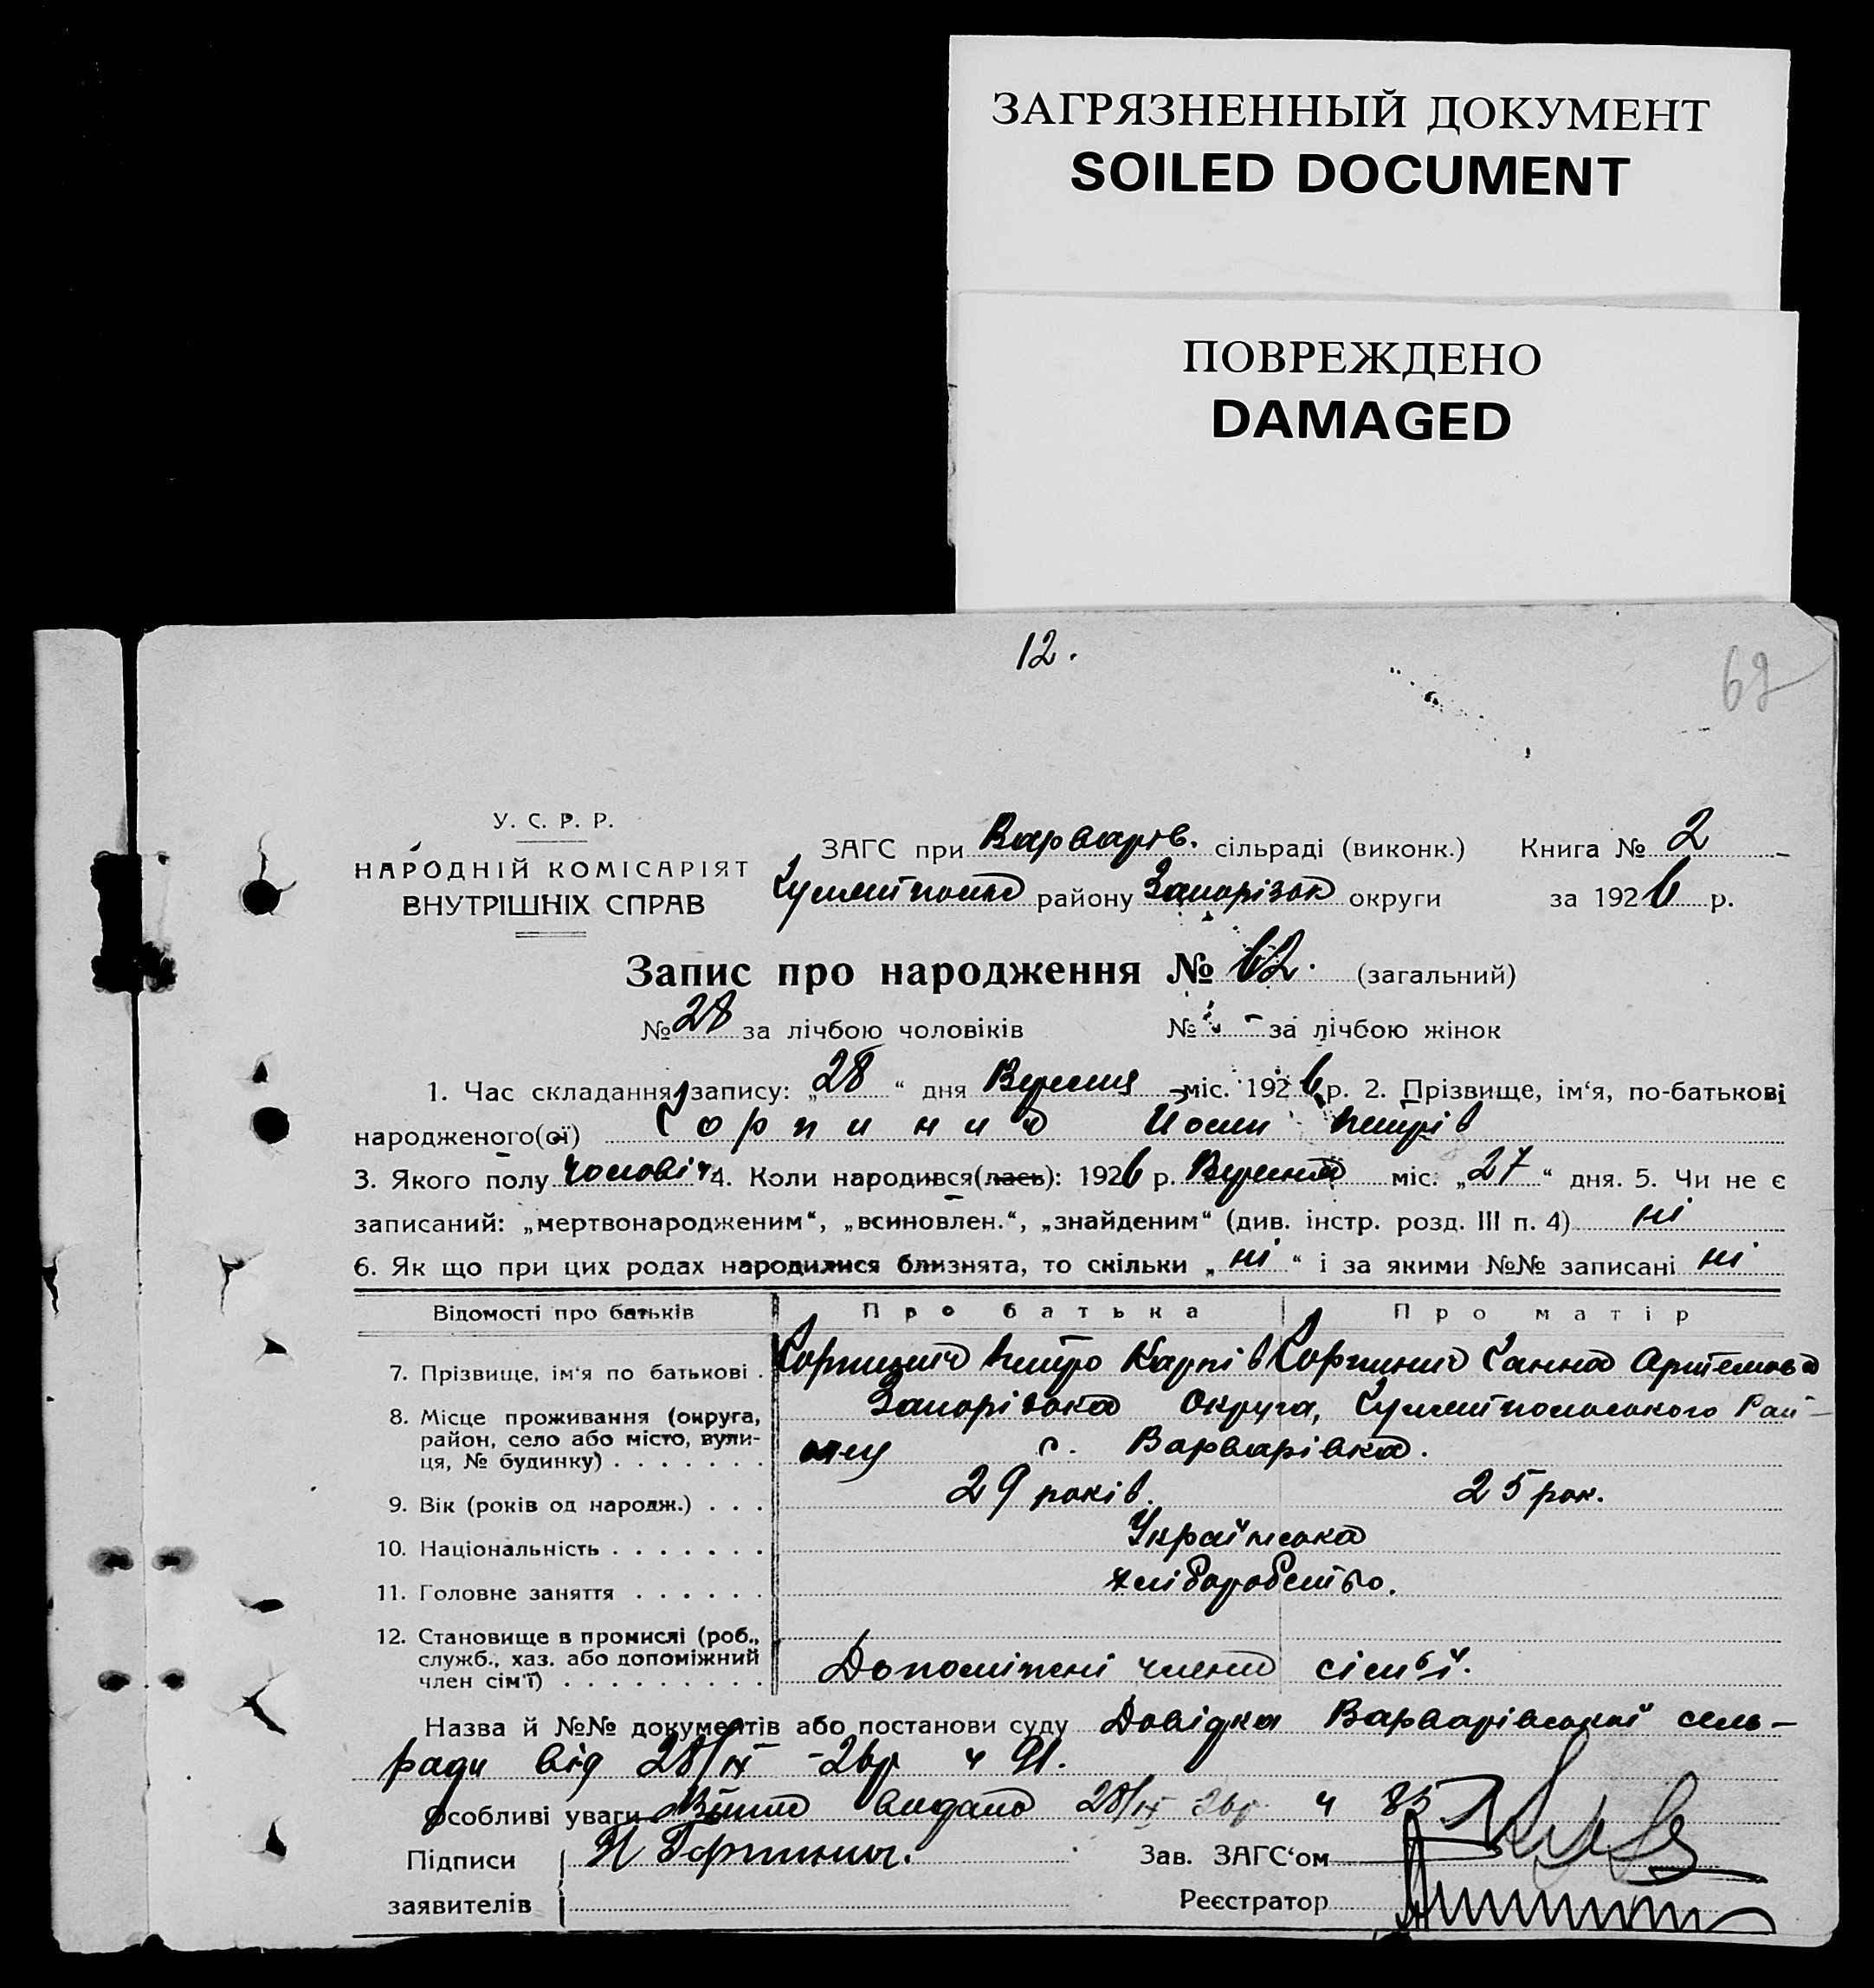 ЗАГРЯЗНЕННЫЙ ДОКУМЕНТ
SOILED DOCUMENT
ПОВРЕЖДЕНО
DAMAGED
12.
69
У. С. Р. Р.
НАРОДНІЙ КОМІСАРІЯТ
ВНУТРІШНІХ СПРАВ
ЗАГС при Варварів. сільраді (виконк.) Книга № 2
району Запорізьк округи за 1926 р.
Запис про народження № 62. (загальний)
№ 28 за лічбою чоловіків № - за лічбою жінок
1. Час складання запису: „28“ дня Вересня міс. 1926 р. 2. Прізвище, ім‘я, по-батькові
народженого(ої) Горпинич Йосип Петрів
3. Якого полу чоловіч 4. Коли народився(лась): 1926 р. Вересня міс. „27“ дня. 5. Чи не є
записаний: „мертвонародженим“, „всиновлен.“, „знайденим“ (див. інстр. розд. III п. 4) ні
6. Як що при цих родах народилися близнята, то скільки „ні“ і за якими №№ записані ні
Відомості про батьків Про батька Про матір
7. Прізвище, ім‘я по батькові . Горпинич Петро Карпів Горпинич Ганна Артемова
8. Місце проживання (округа, Запорізька Округа, Гуляйпольського Рай-
район, село або місто, вули-
ця, № будинку) . . . . . . . ону с. Варварівка.
9. Вік (років од народж.) . . . 29 років. 25 рок.
10. Національність . . . . . . . Українська
11. Головне заняття . . . . . . хліборобство.
12. Становище в промислі (роб.,
служб., хаз. або допоміжний
член сім‘ї) . . . . . . . . . Допоміжні члени сім‘ї.
Назва й №№ документів або постанови суду Довідка Варварівської сель-
ради від 28/IX -26р ч 91.
Особливі уваги видано 28/IX 26р ч 85
Підписи Горпинич.
Зав. ЗАГС‘ом
заявителів
Реєстратор